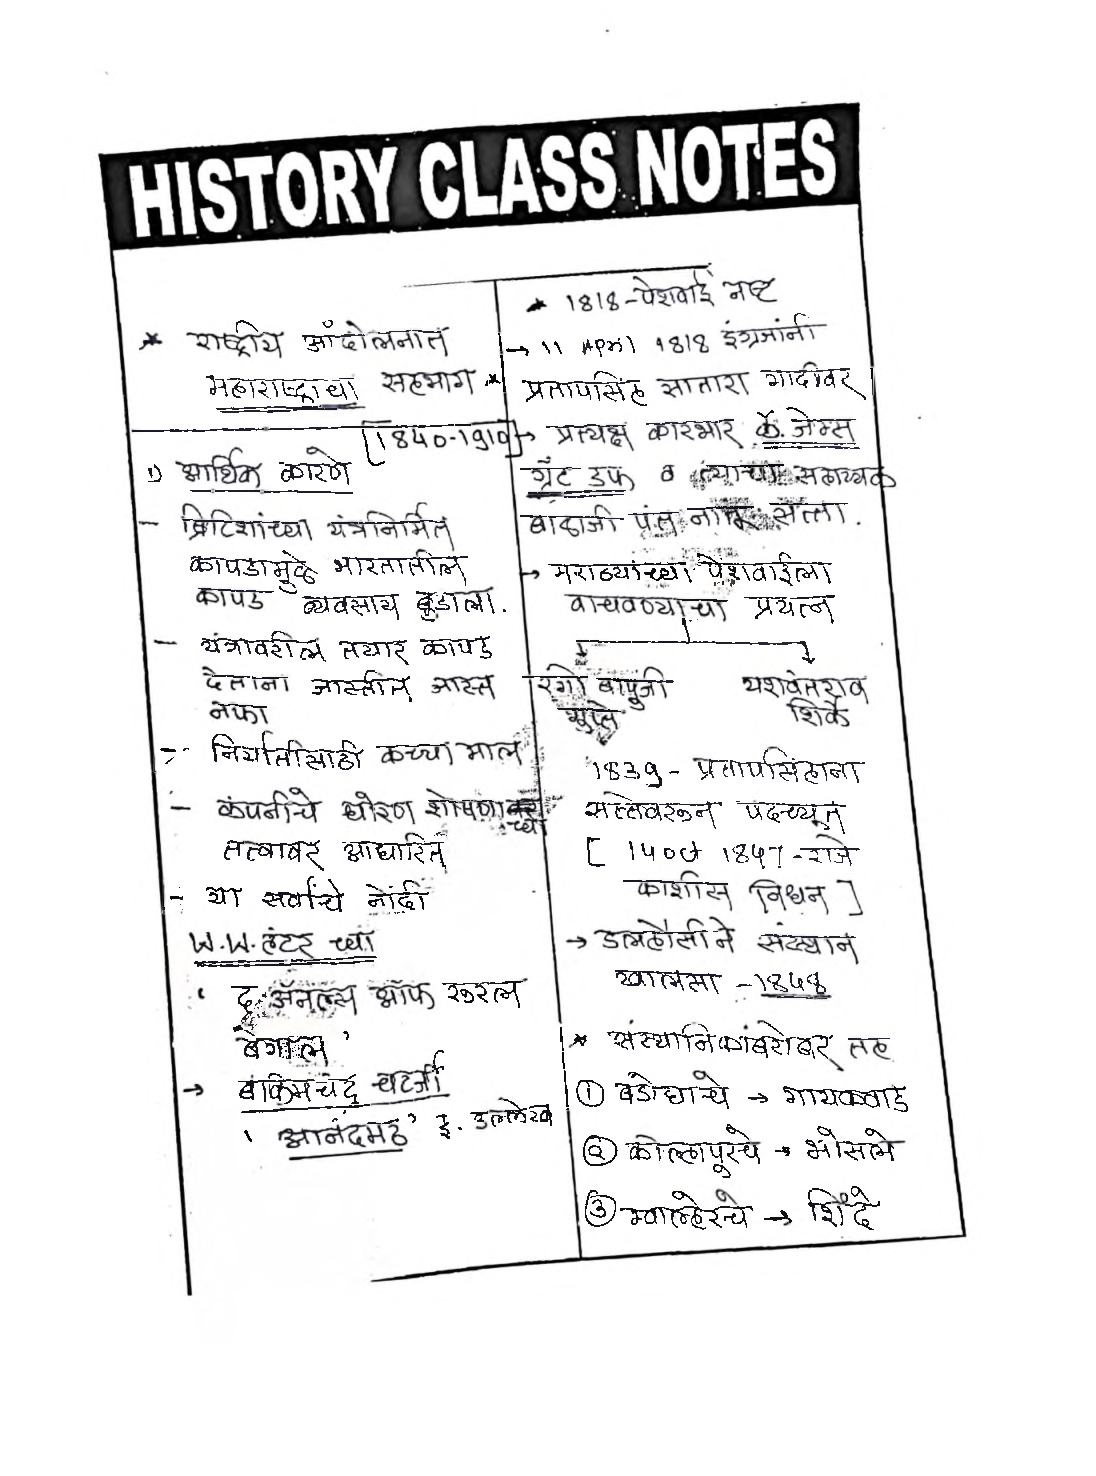 HISTORY CLASS NOTES
* राष्ट्रीय आंदोलनात
महाराष्ट्राचा सहभाग *
[1840-1910]
1) आर्थिक कारणे
- ब्रिटिशांच्या यंत्रनिर्मित
कापडामुळे भारतातील
कापड व्यवसाय बुडाला.
- यंत्रावरील तयार कापड
देताना जास्तीत जास्त
नफा
- निर्यातीसाठी कच्चा माल
- कंपनीचे धोरण शोषणाच्या
तत्वावर आधारित
- या सर्वांचे नोंदी
W.W. हंटर च्या
' द ॲनल्स ऑफ रूरल
बेंगाल '
→ बंकिमचंद्र चटर्जी
' आनंदमठ' इ. उल्लेख
* 1818 - पेशवाई नष्ट
→ 11 April 1818 इंग्रजांनी
प्रतापसिंह सातारा गादीवर
→ प्रत्यक्ष कारभार कॅ. जेम्स
ग्रँट डफ व त्याचा सहाय्यक
बाळाजी पंत नातू सत्ता.
→ मराठ्यांच्या पेशवाईला
वाचवण्याचा प्रयत्न
रंगो बापुजी यशवंतराव
गुप्ते शिर्के
1839 - प्रतापसिंहाना
सत्तेवरून पदच्यूत
[ 14 Oct 1847 - राजे
काशीस निधन ]
→ डलहौसीने संस्थान
खालसा - 1848
* संस्थानिकांबरोबर तह
① बडोद्याचे → गायकवाड
② कोल्हापूरचे → भोसले
③ ग्वाल्हेरचे → शिंदे